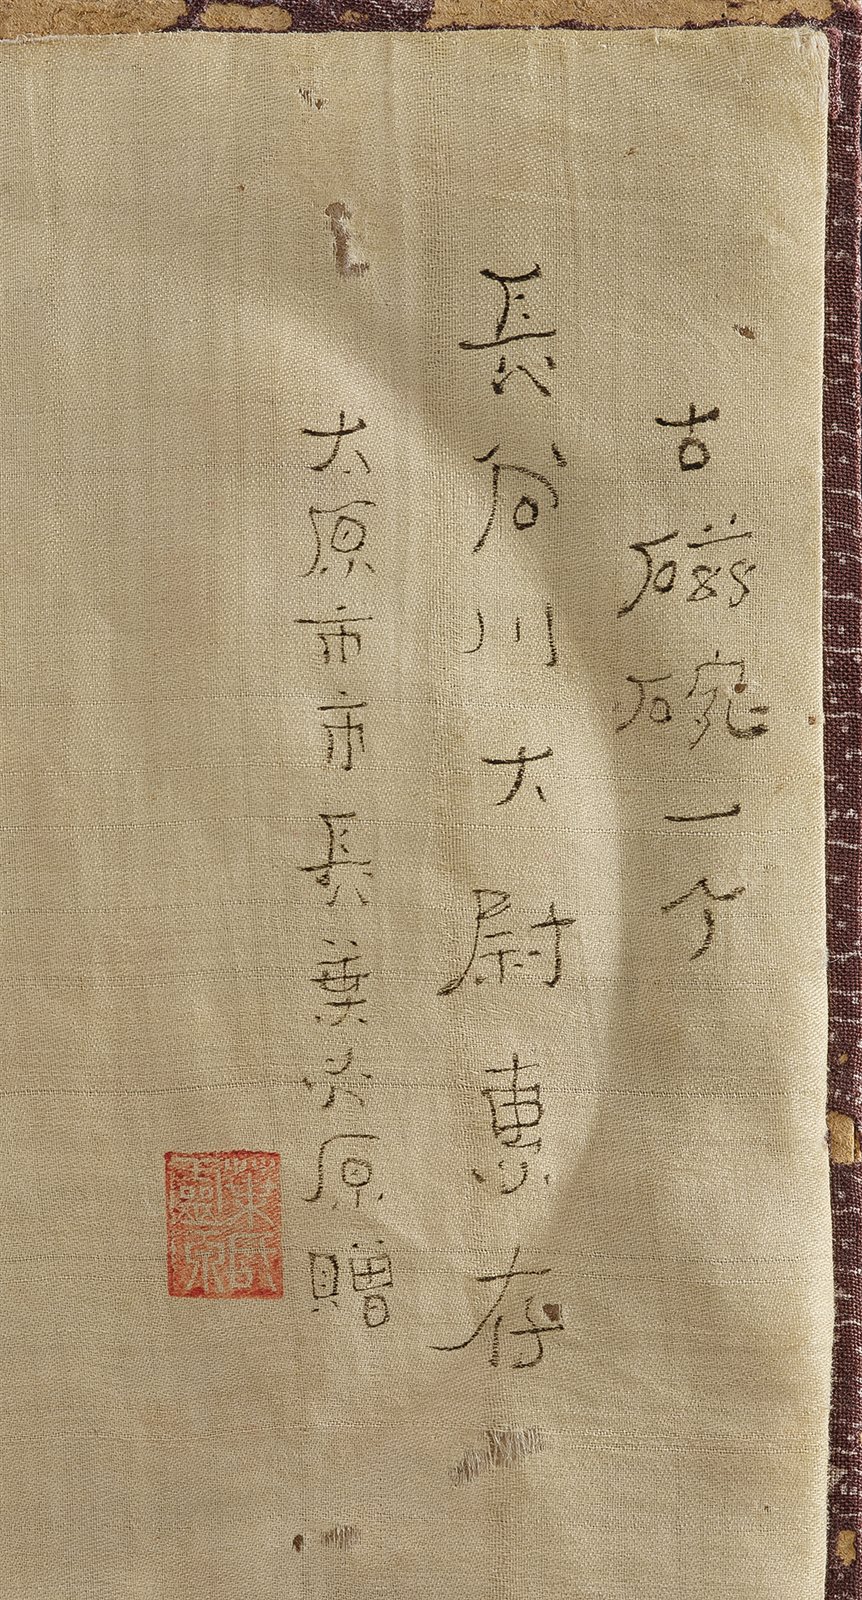 古磁碗一个
長谷川大尉惠存
太原市市長葉 原贈